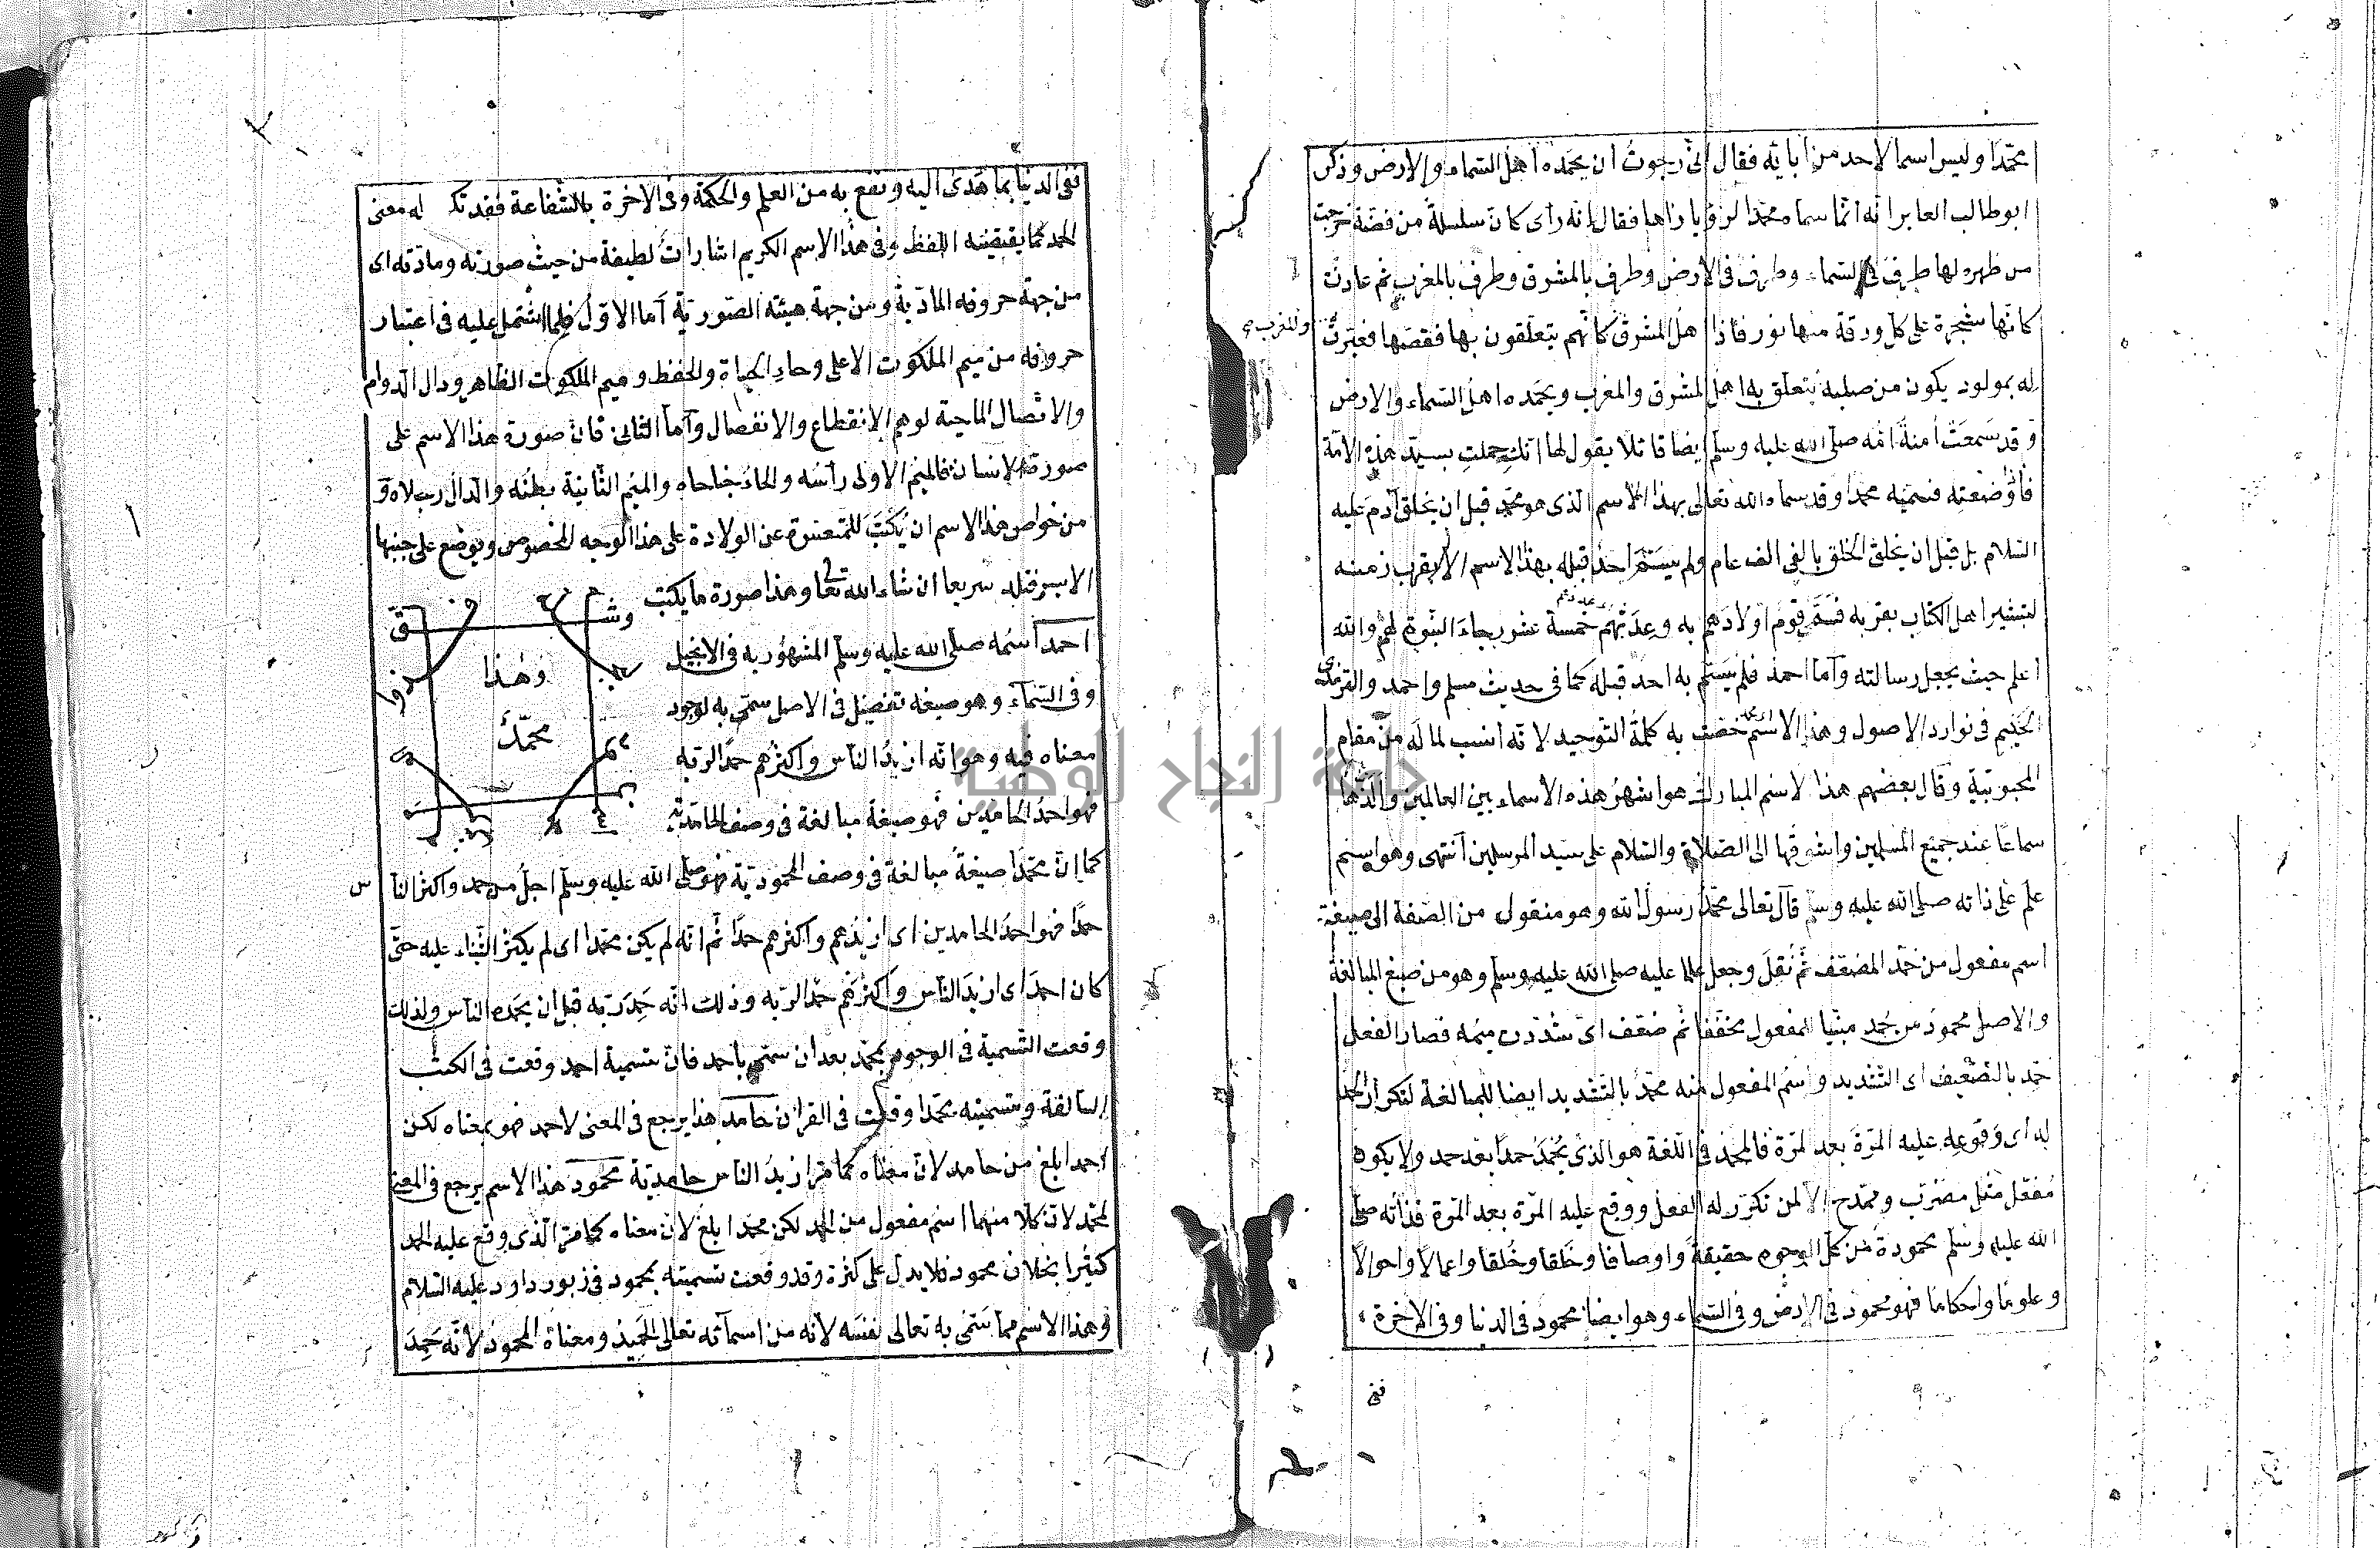 محمدا وليس اسما لاحد من ابائه فقال انى رجوت ان يحمده اهل السماء والارض وذكر
ابو طالب العابر انه انما سماه محمدا لرؤيا راها فقال انه راى كان سلسلة من فضة خرجت
من ظهره لها طرف فى السماء وطرف فى الارض وطرف بالمشرق وطرف بالمغرب ثم عادت
كانها شجرة على كل ورقة منها نور فاذا اهل المشرق كانهم يتعلقون بها فقصها فعبرت
والمغرب
له بمولود يكون من صلبه يتعلق به اهل المشرق والمغرب ويحمده اهل السماء والارض
وقد سمعت امنة امه صلى الله عليه وسلم ايضا قائلا يقول لها انك حملت بسيد هذه الامة
فاذا وضعته فسميه محمدا وقد سماه الله تعالى بهذا الاسم الذى هو محمد قبل ان يخلق آدم عليه
السلام بل قبل ان يخلق الخلق بالفى الف عام ولم يتسم احد قبله بهذا الاسم الا بقرب زمنه
لتبشير اهل الكتاب بقربه فسمى قوم اولادهم به وعدتهم خمسة عشر رجاء النبوة لهم والله
اعلم حيث يجعل رسالته واما احمد فلم يتسم به احد قبله كما فى حديث مسلم واحمد والترمذى
الحكيم فى نوادر الاصول وهذا الاسم خصت به كلمة التوحيد لانه انسب لما له من مقام
المحبوبية وقال بعضهم هذا الاسم المبارك هو اشهر هذه الاسماء بين العالمين والذها
سماعا عند جميع المسلمين واشوقها الى الصلاة والسلام على سيد المرسلين انتهى وهو اسم
علم على ذاته صلى الله عليه وسلم قال تعالى محمد رسول الله وهو منقول من الصفة الى صيغة
اسم مفعول من حمد المضعف ثم نقل وجعل علما عليه صلى الله عليه وسلم وهو من صيغ المبالغة
والاصل محمود من حمد مبنيا للمفعول مخففا ثم ضعف اى شددت ميمه فصار الفعل
حمد بالتضعيف اى التشديد واسم المفعول منه محمد بالتشديد ايضا للمبالغة لتكرار الحمد
له اى وقوعه عليه المرة بعد المرة فالمحمد فى اللغة هو الذى يحمد حمدا بعد حمد ولا يكون
مفعل مثل مضرب وممدح الا لمن تكرر له الفعل ووقع عليه المرة بعد المرة فذاته صلى
الله عليه وسلم محمودة من كل الوجوه حقيقة واوصافا وخلقا وخلقا واعمالا واحوالا
وعلوما واحكاما فهو محمود فى الارض وفى السماء وهو ايضا محمود فى الدنيا وفى الاخرة
ففى
ففى الدنيا بما هدى اليه ونفع به من العلم والحكمة وفى الاخرة بالشفاعة فقد تكرر له معنى
الحمد كما يقتضيه اللفظ وفى هذا الاسم الكريم اشارات لطيفة من حيث صورته ومادته اى
من جهة حروفه المادية ومن جهة هيئته الصورية اما الاول فلما اشتمل عليه فى اعتبار
حروفه من ميم الملكوت الاعلى وحاء الحياة والحفظ وميم الملكوت الظاهر ودال الدوام
والاتصال الماحية لوهم الانقطاع والانفصال واما الثانى فان صورة هذا الاسم على
صورة الانسان فالميم الاولى راسه والحاء جناحاه والميم الثانية بطنه والدال رجلاه و
من خواص هذا الاسم ان يكتب للمتعسرة عن الولادة على هذا الوجه المخصوص ويوضع على جنبها
الايسر فتلد سريعا ان شاء الله تعالى وهذا صورة ما يكتب
وهذا
محمد
احمد اسمه صلى الله عليه وسلم المشهور به فى الانجيل
وفى السماء وهو صيغة تفضيل فى الاصل سمى به لوجود
معناه فيه وهو انه ازيد الناس واكثرهم حمدا لربه
فهو احمد الحامدين فهو صيغة مبالغة فى وصف الحامدية
كما ان محمدا صيغة مبالغة فى وصف المحمودية فهو صلى الله عليه وسلم اجل من حمد واكثر الناس
حمدا فهو احمد الحامدين اى ازيدهم واكثرهم حمدا ثم انه لم يكن محمدا اى لم يكثر الثناء عليه حتى
كان احمد اى ازيد الناس واكثرهم حمدا لربه وذلك انه حمد ربه قبل ان يحمده الناس ولذلك
وقعت التسمية فى الوجود بمحمد بعد ان سمى باحمد فان تسمية احمد وقعت فى الكتب
السالفة وتسميته محمدا وقعت فى القران حامد هذا يرجع فى المعنى لاحمد فهو بمعناه لكن
احمد ابلغ من حامد لان معناه كما مر ازيد الناس حامدية محمود هذا الاسم يرجع فى المعنى
لمحمد لان كلا منهما اسم مفعول من الحمد لكن محمد ابلغ لان معناه كما مر الذى وقع عليه الحمد
كثيرا بخلاف محمود فلا يدل على كثرة وقد وقعت تسميته بمحمود فى زبور داود عليه السلام
وهذا الاسم مما سمى به تعالى نفسه لانه من اسمائه تعالى الحميد ومعناه المحمود لانه حمد
جامعة النجاح الوطنية